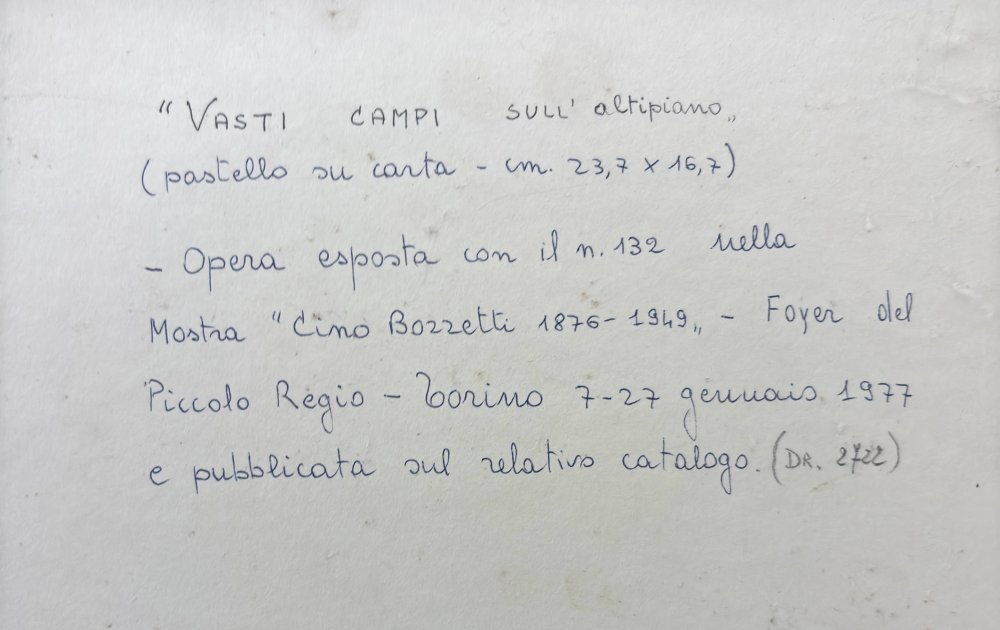 “VASTI CAMPI SULL' altipiano„
(pastello su carta - cm. 23,7 x 16,7)
- Opera esposta con il n. 132 nella
Mostra “Cino Bozzetti 1876-1949„ - Foyer del
Piccolo Regio - Torino 7-27 gennaio 1977
e pubblicata sul relativo catalogo. (DR. 2722)